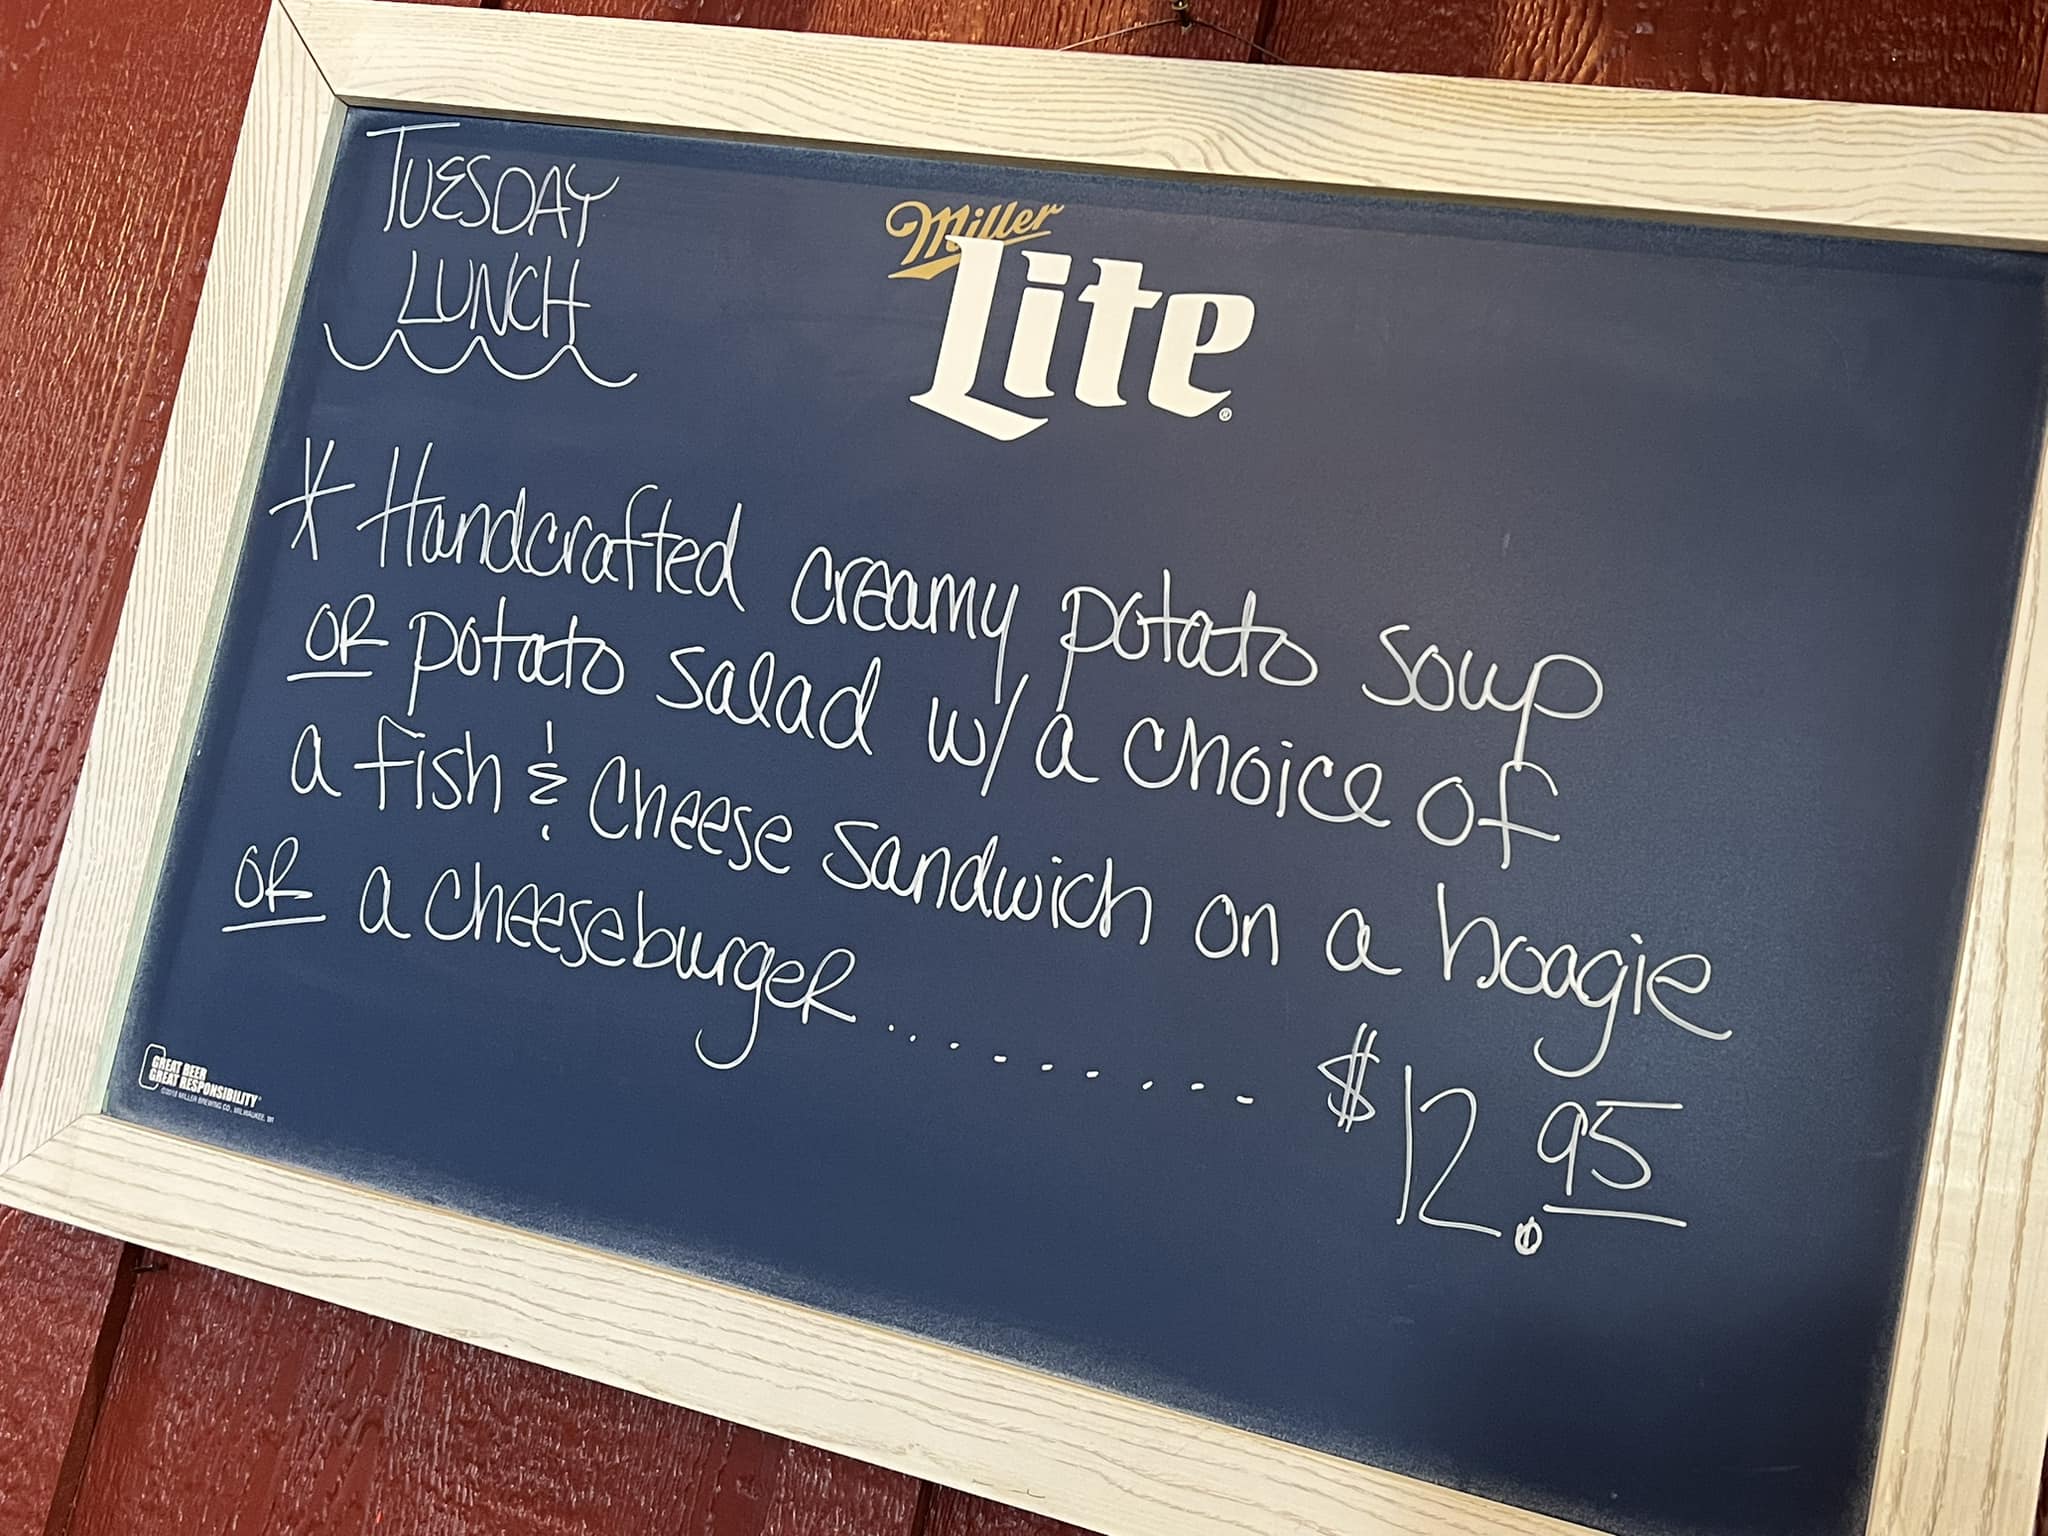 TUESDAY
LUNCH
Miller
Lite®
* Handcrafted creamy potato soup
OR potato salad w/ a choice of
a fish & cheese sandwich on a hoagie
OR a cheeseburger......... $12.95
GREAT BEER
GREAT RESPONSIBILITY®
©2018 MILLER BREWING CO., MILWAUKEE, WI